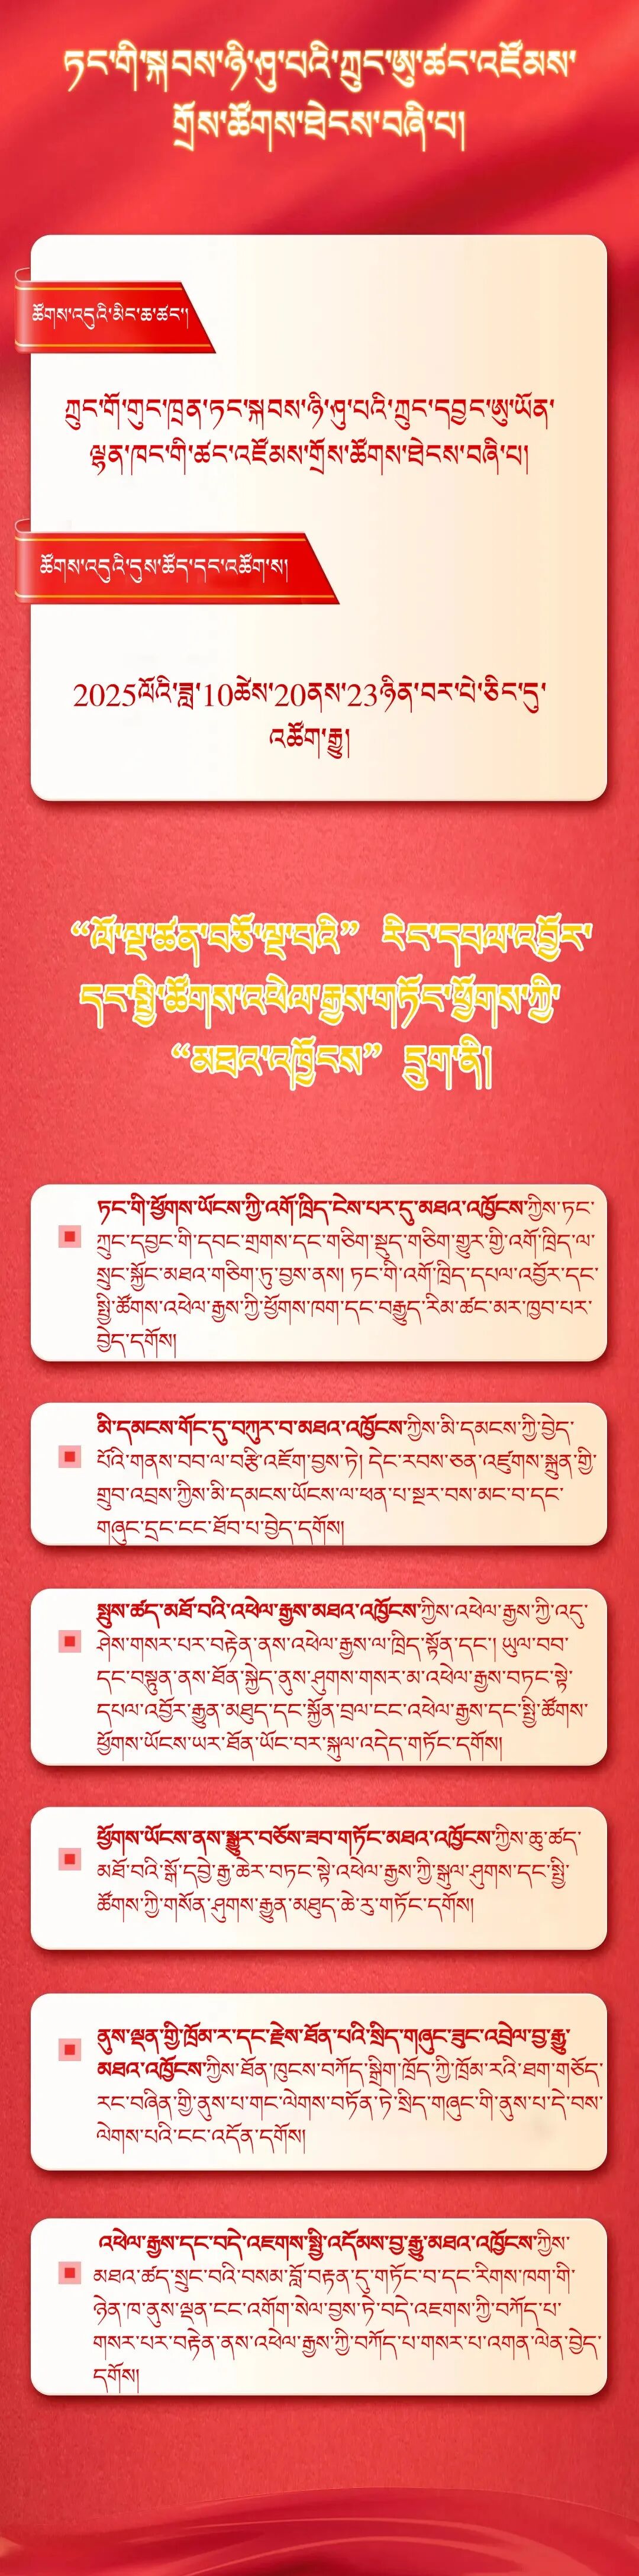 ཏང་གི་སྐབས་ཉི་ཤུ་པའི་ཀྲུང་ཨུ་ཚང་འཛོམས་
གྲོས་ཚོགས་ཐེངས་བཞི་པ།
ཚོགས་འདུའི་མིང་ཆ་ཚང་།
ཀྲུང་གོ་གུང་ཁྲན་ཏང་སྐབས་ཉི་ཤུ་པའི་ཀྲུང་དབྱང་ཨུ་ཡོན་
ལྷན་ཁང་གི་ཚང་འཛོམས་གྲོས་ཚོགས་ཐེངས་བཞི་པ།
ཚོགས་འདུའི་དུས་ཚོད་དང་འཚོག་ས།
2025ལོའི་ཟླ་10ཚེས་20ནས་23ཉིན་བར་པེ་ཅིང་དུ་
འཚོག་རྒྱུ།
“ལོ་ལྔ་ཚན་བཅོ་ལྔ་པའི” རིང་དཔལ་འབྱོར་
དང་སྤྱི་ཚོགས་འཕེལ་རྒྱས་གཏོང་ཕྱོགས་ཀྱི་
“མཐའ་འཁྱོངས” དྲུག་ནི།
ཏང་གི་ཕྱོགས་ཡོངས་ཀྱི་འགོ་ཁྲིད་ངེས་པར་དུ་མཐའ་འཁྱོངས་ཀྱིས་ཏང་
ཀྲུང་དབྱང་གི་དབང་གྲགས་དང་གཅིག་སྡུད་གཅིག་གྱུར་གྱི་འགོ་ཁྲིད་ལ་
སྲུང་སྐྱོང་མཐའ་གཅིག་ཏུ་བྱས་ནས། ཏང་གི་འགོ་ཁྲིད་དཔལ་འབྱོར་དང་
སྤྱི་ཚོགས་འཕེལ་རྒྱས་ཀྱི་ཕྱོགས་ཁག་དང་བརྒྱུད་རིམ་ཚང་མར་ཁྱབ་པར་
བྱེད་དགོས།
མི་དམངས་གོང་དུ་བཀུར་བ་མཐའ་འཁྱོངས་ཀྱིས་མི་དམངས་ཀྱི་བྱེད་
པོའི་གནས་བབ་ལ་བརྩི་འཇོག་བྱས་ཏེ། དེང་རབས་ཅན་འཛུགས་སྐྲུན་གྱི་
གྲུབ་འབྲས་ཀྱིས་མི་དམངས་ཡོངས་ལ་ཕན་པ་སྔར་བས་མང་བ་དང་
གཞུང་དྲང་ངང་ཐོབ་པ་བྱེད་དགོས།
སྤུས་ཚད་མཐོ་བའི་འཕེལ་རྒྱས་མཐའ་འཁྱོངས་ཀྱིས་འཕེལ་རྒྱས་ཀྱི་འདུ་
ཤེས་གསར་པར་བརྟེན་ནས་འཕེལ་རྒྱས་ལ་ཁྲིད་སྟོན་དང་། ཡུལ་བབ་
དང་བསྟུན་ནས་ཐོན་སྐྱེད་ནུས་ཤུགས་གསར་མ་འཕེལ་རྒྱས་བཏང་སྟེ་
དཔལ་འབྱོར་རྒྱུན་མཐུད་དང་སྐྱོན་བྲལ་ངང་འཕེལ་རྒྱས་དང་སྤྱི་ཚོགས་
ཕྱོགས་ཡོངས་ཡར་ཐོན་ཡོང་བར་སྐུལ་འདེད་གཏོང་དགོས།
ཕྱོགས་ཡོངས་ནས་སྒྱུར་བཅོས་ཟབ་གཏོང་མཐའ་འཁྱོངས་ཀྱིས་ཆུ་ཚད་
མཐོ་བའི་སྒོ་དབྱེ་རྒྱ་ཆེར་བཏང་སྟེ་འཕེལ་རྒྱས་ཀྱི་སྒུལ་ཤུགས་དང་སྤྱི་
ཚོགས་ཀྱི་གསོན་ཤུགས་རྒྱུན་མཐུད་ཆེ་རུ་གཏོང་དགོས།
ནུས་ལྡན་གྱི་ཁྲོམ་ར་དང་རྗེས་ཐོན་པའི་སྲིད་གཞུང་ཟུང་འབྲེལ་བྱ་རྒྱུ་
མཐའ་འཁྱོངས་ཀྱིས་ཐོན་ཁུངས་བཀོད་སྒྲིག་ཁྲོད་ཀྱི་ཁྲོམ་རའི་ཐག་གཅོད་
རང་བཞིན་གྱི་ནུས་པ་གང་ལེགས་བཏོན་ཏེ་སྲིད་གཞུང་གི་ནུས་པ་དེ་བས་
ལེགས་པའི་ངང་འདོན་དགོས།
འཕེལ་རྒྱས་དང་བདེ་འཇགས་སྤྱི་འདོམས་བྱ་རྒྱུ་མཐའ་འཁྱོངས་ཀྱིས་
མཐའ་ཚད་སྲུང་བའི་བསམ་བློ་བརྟན་དུ་གཏོང་བ་དང་རིགས་ཁག་གི་
ཉེན་ཁ་ནུས་ལྡན་ངང་འགོག་སེལ་བྱས་ཏེ་བདེ་འཇགས་ཀྱི་བཀོད་པ་
གསར་པར་བརྟེན་ནས་འཕེལ་རྒྱས་ཀྱི་བཀོད་པ་གསར་པ་འགན་ལེན་བྱེད་
དགོས།